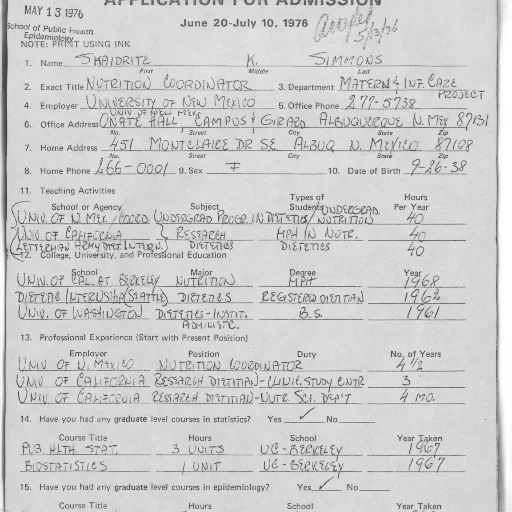 APPLICATION FOR ADMISSION
MAY 13 1976
June 20-July 10, 1976
5/13/76
School of Public Health
Epidemiology
NOTE: PRINT USING INK
1. Name SKAIDRITE K. SIMMONS
First Middle Last
2. Exact Title NUTRITION COORDINATOR 3. Department MATERN & INF. CARE PROJECT
4. Employer UNIVERSITY OF NEW MEXICO 5. Office Phone 277-5738
UNIV. OF NEW MEX
6. Office Address ONATE HALL CAMPUS & GIRARD ALBUQUERQUE N. MEX 87131
No. Street City State Zip
7. Home Address 451 MONTCLAIRE DR SE ALBUQ N. MEXICO 87108
No. Street City State Zip
8. Home Phone 266-0001 9. Sex F 10. Date of Birth 9-26-38
11. Teaching Activities
School or Agency Subject Types of Students Hours Per Year
UNIV. OF N. MEX./COORD. UNDERGRAD. PROGR. IN DIETETICS/NUTRITION UNDERGRAD. 40
UNIV OF CALIFORNIA RESEARCH MPH IN NUTR. 40
(LETTERMAN ARMY DIET INTERN.) DIETETICS DIETETICS 40
12. College, University, and Professional Education
School Major Degree Year
UNIV. OF CAL. AT BERKELEY NUTRITION MPH 1968
DIETETIC INTERNSHIP (SEATTLE) DIETETICS REGISTERED DIETITIAN 1962
UNIV. OF WASHINGTON DIETETICS-INSTIT. B.S. 1961
ADMINISTR.
13. Professional Experience (Start with Present Position)
Employer Position Duty No. of Years
UNIV OF N. MEXICO NUTRITION COORDINATOR 4 1/2
UNIV OF CALIFORNIA RESEARCH DIETITIAN-CLINIC. STUDY CNTR 3
UNIV OF CALIFORNIA RESEARCH DIETITIAN-NUTR. SCI. DEP'T 4 MO.
14. Have you had any graduate level courses in statistics? Yes ✓ No
Course Title Hours School Year Taken
PUB. HLTH. STAT. 3 UNITS UC-BERKELEY 1967
BIOSTATISTICS 1 UNIT UC-BERKELEY 1967
15. Have you had any graduate level courses in epidemiology? Yes ✓ No
Course Title Hours School Year Taken